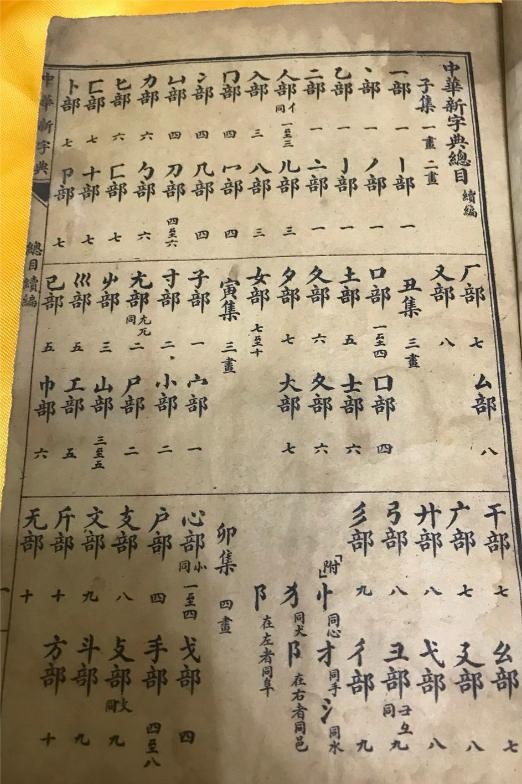 中華新字典總目 續編
子集 一畫 二畫
一部 一 丨部 一
丶部 一 丿部 一
乙部 一 亅部 一
二部 一 亠部 一
人部 亻同 一至三 儿部 三
入部 三 八部 三
冂部 四 冖部 四
冫部 四 几部 四
凵部 四 刀部 四至六
力部 六 勹部 六
匕部 六 匚部 七
匸部 七 十部 七
卜部 七 卩部 七
厂部 七 厶部 八
又部 八
丑集 三畫
口部 一至四 囗部 四
土部 五 士部 六
夂部 六 夊部 六
夕部 七 大部 七
女部 七至十
寅集 三畫
子部 一 宀部 一
寸部 二 小部 二
尢部 尣兀同 二 尸部 二
屮部 三 山部 三至五
巛部 五 工部 五
己部 五 巾部 六
干部 七 幺部 七
广部 七 廴部 八
廾部 八 弋部 八
弓部 八 彑同 九
彡部 九 彳部 九
「附」忄同心 扌同手 氵同水
犭同犬 阝在右者同邑
阝在左者同阜
卯集 四畫
心部 㣺同 一至四 戈部 四
戶部 四 手部 四至八
支部 八 攴部 攵同 九
文部 九 斗部 九
斤部 十 方部 十
无部 十
中華新字典
總目續編
一